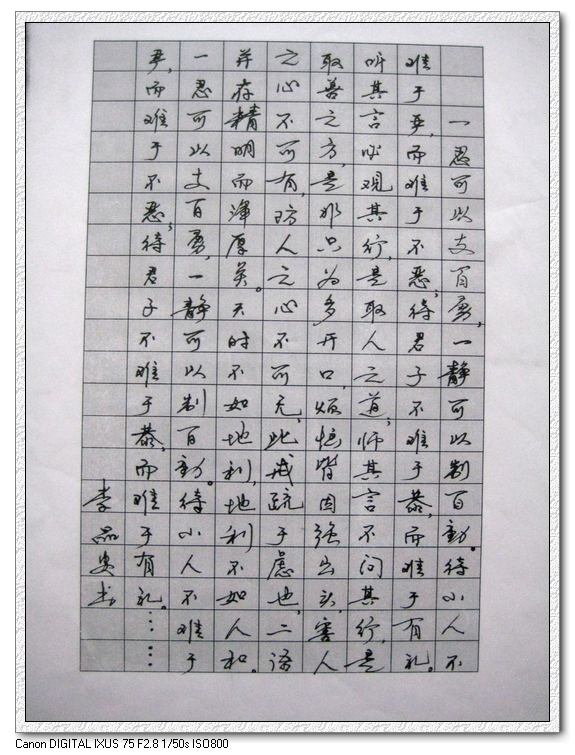 一忍可以支百勇,一静可以制百動。待小人不
难于严,而难于不恶;待君子不难于恭,而难于有礼。
听其言必观其行,是取人之道;师其言不问其行,是
取善之方,是非只为多开口,烦恼皆因强出头,害人
之心不可有,防人之心不可无,此戒疏于虑也,二语
并存精明而浑厚矣。天时不如地利,地利不如人和。
一忍可以支百勇,一静可以制百動。待小人不难于
严,而难于不恶;待君子不难于恭,而难于有礼。……
李品 书
Canon DIGITAL IXUS 75 F2.8 1/50s ISO800